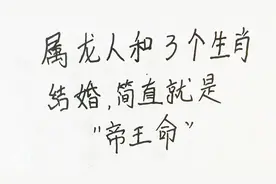 属龙人和3个生肖
结婚,简直就是
"帝王命"